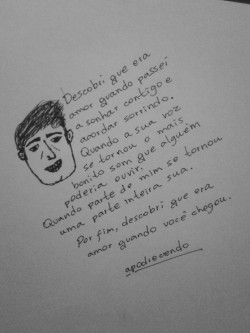 Descobri que era
amor quando passei
a sonhar contigo e
acordar sorrindo.
Quando a sua voz
se tornou o mais
bonito som que alguém
poderia ouvir.
Quando parte de mim se tornou
uma parte inteira sua.
Por fim, descobri que era
amor quando você chegou.
apodrecendo